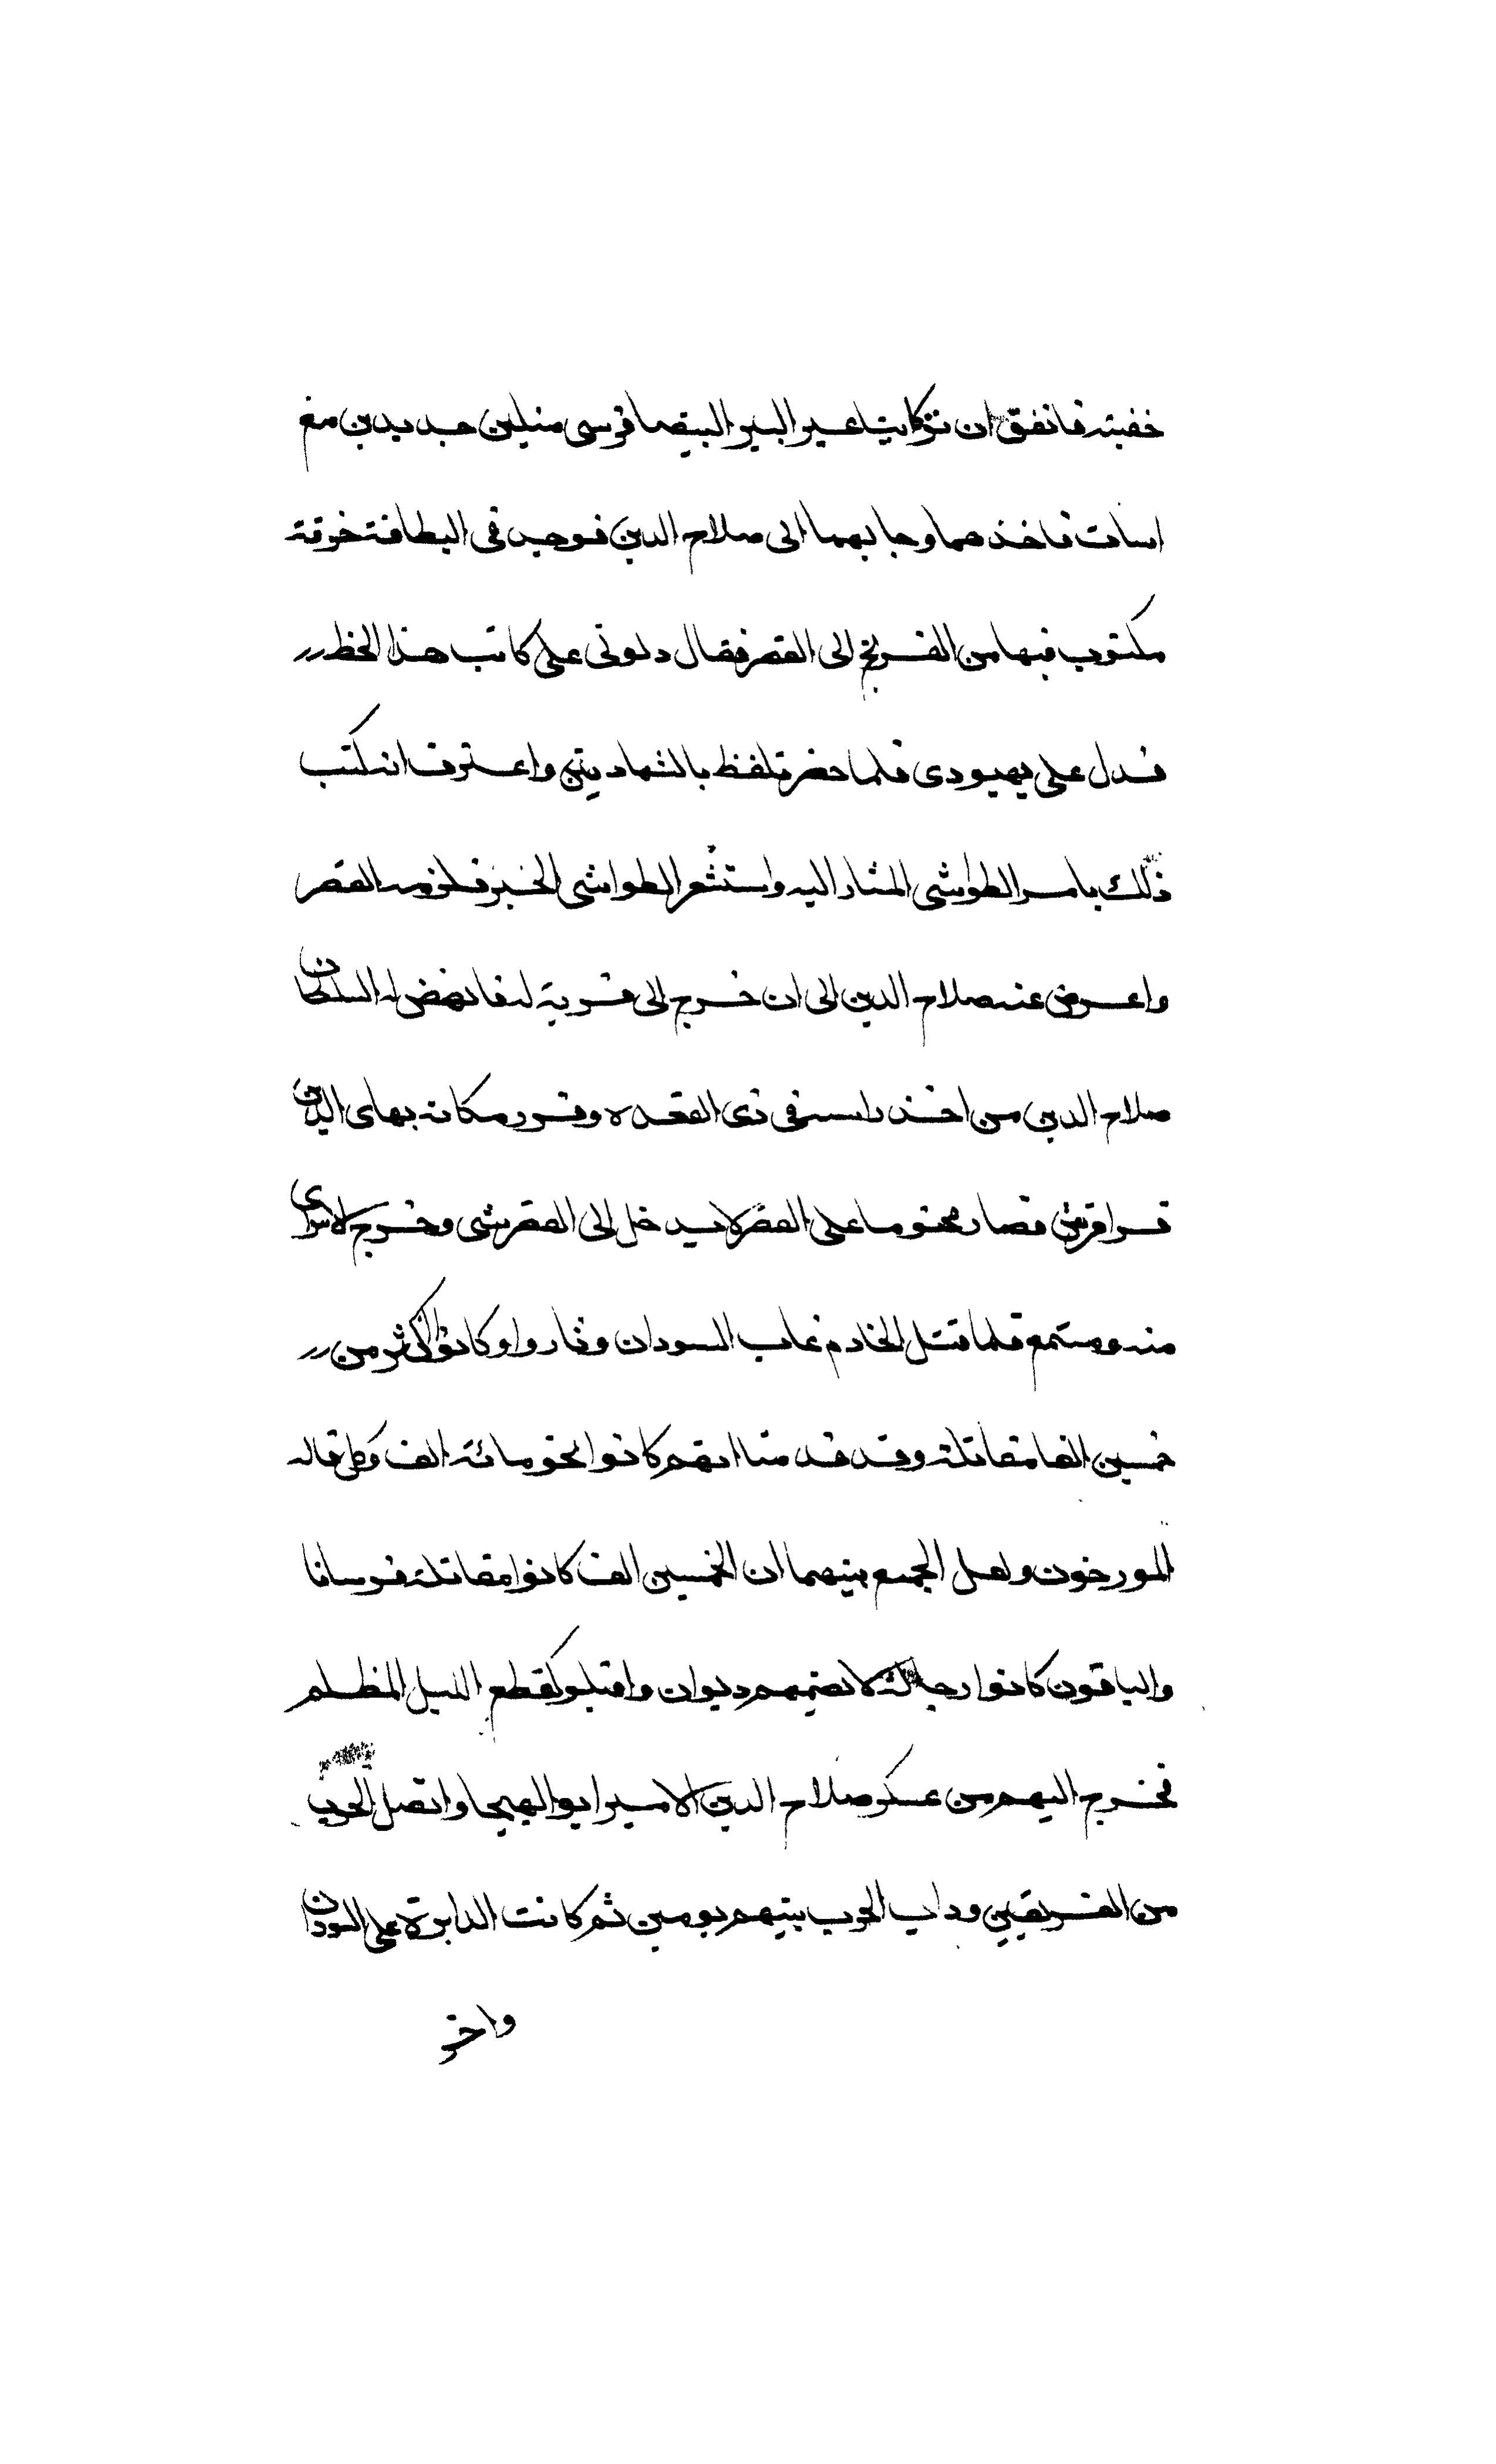 خفيته فاتفق ان تركمانيا عبر البير البيضا فرسى منيلين جديدين مع
انسان فاخذهما وجا بهما الى صلاح الدين فوجد فى البطانة خرقة
مكتوب فيها من الفرنج الى القصر فقال دلونى على كاتب هذا الخط
فدل على يهودى فلما حضر تلفظ بالشهادتين واعترف انه كتب
ذلك بامر الطواشى المشار اليه واستشعر الطواشى الخبر فلزم القصر
واعرض عنه صلاح الدين الى ان خرج الى قرية له فانهض له السلطان
صلاح الدين من اخذ راسه فى ذى القعدة وقرر مكانه بهاى الدين
قراقوش فصار محتوما على القصر لا يدخل الى القصر شى وخرج الا بمراى
منه ومستمع فلما قتل الخادم غاب السودان وثاروا وكانوا اكثر من
خمسين الفا مقاتلة وقد قدمنا انهم كانوا نحو مائة الف وكل قاله
المورخون ولعل الجمع بينهما ان الخمسين الف كانوا مقاتلة فرسانا
والباقون كانوا رجالة لا يضمهم ديوان واقبلوا كقطع الليل المظلم
فخرج اليهم من عسكر صلاح الدين الامير ابو الهيجا واتصل الحرب
من الفريقين وداب الحرب بينهم يومين ثم كانت الدايرة على السودان
واخر